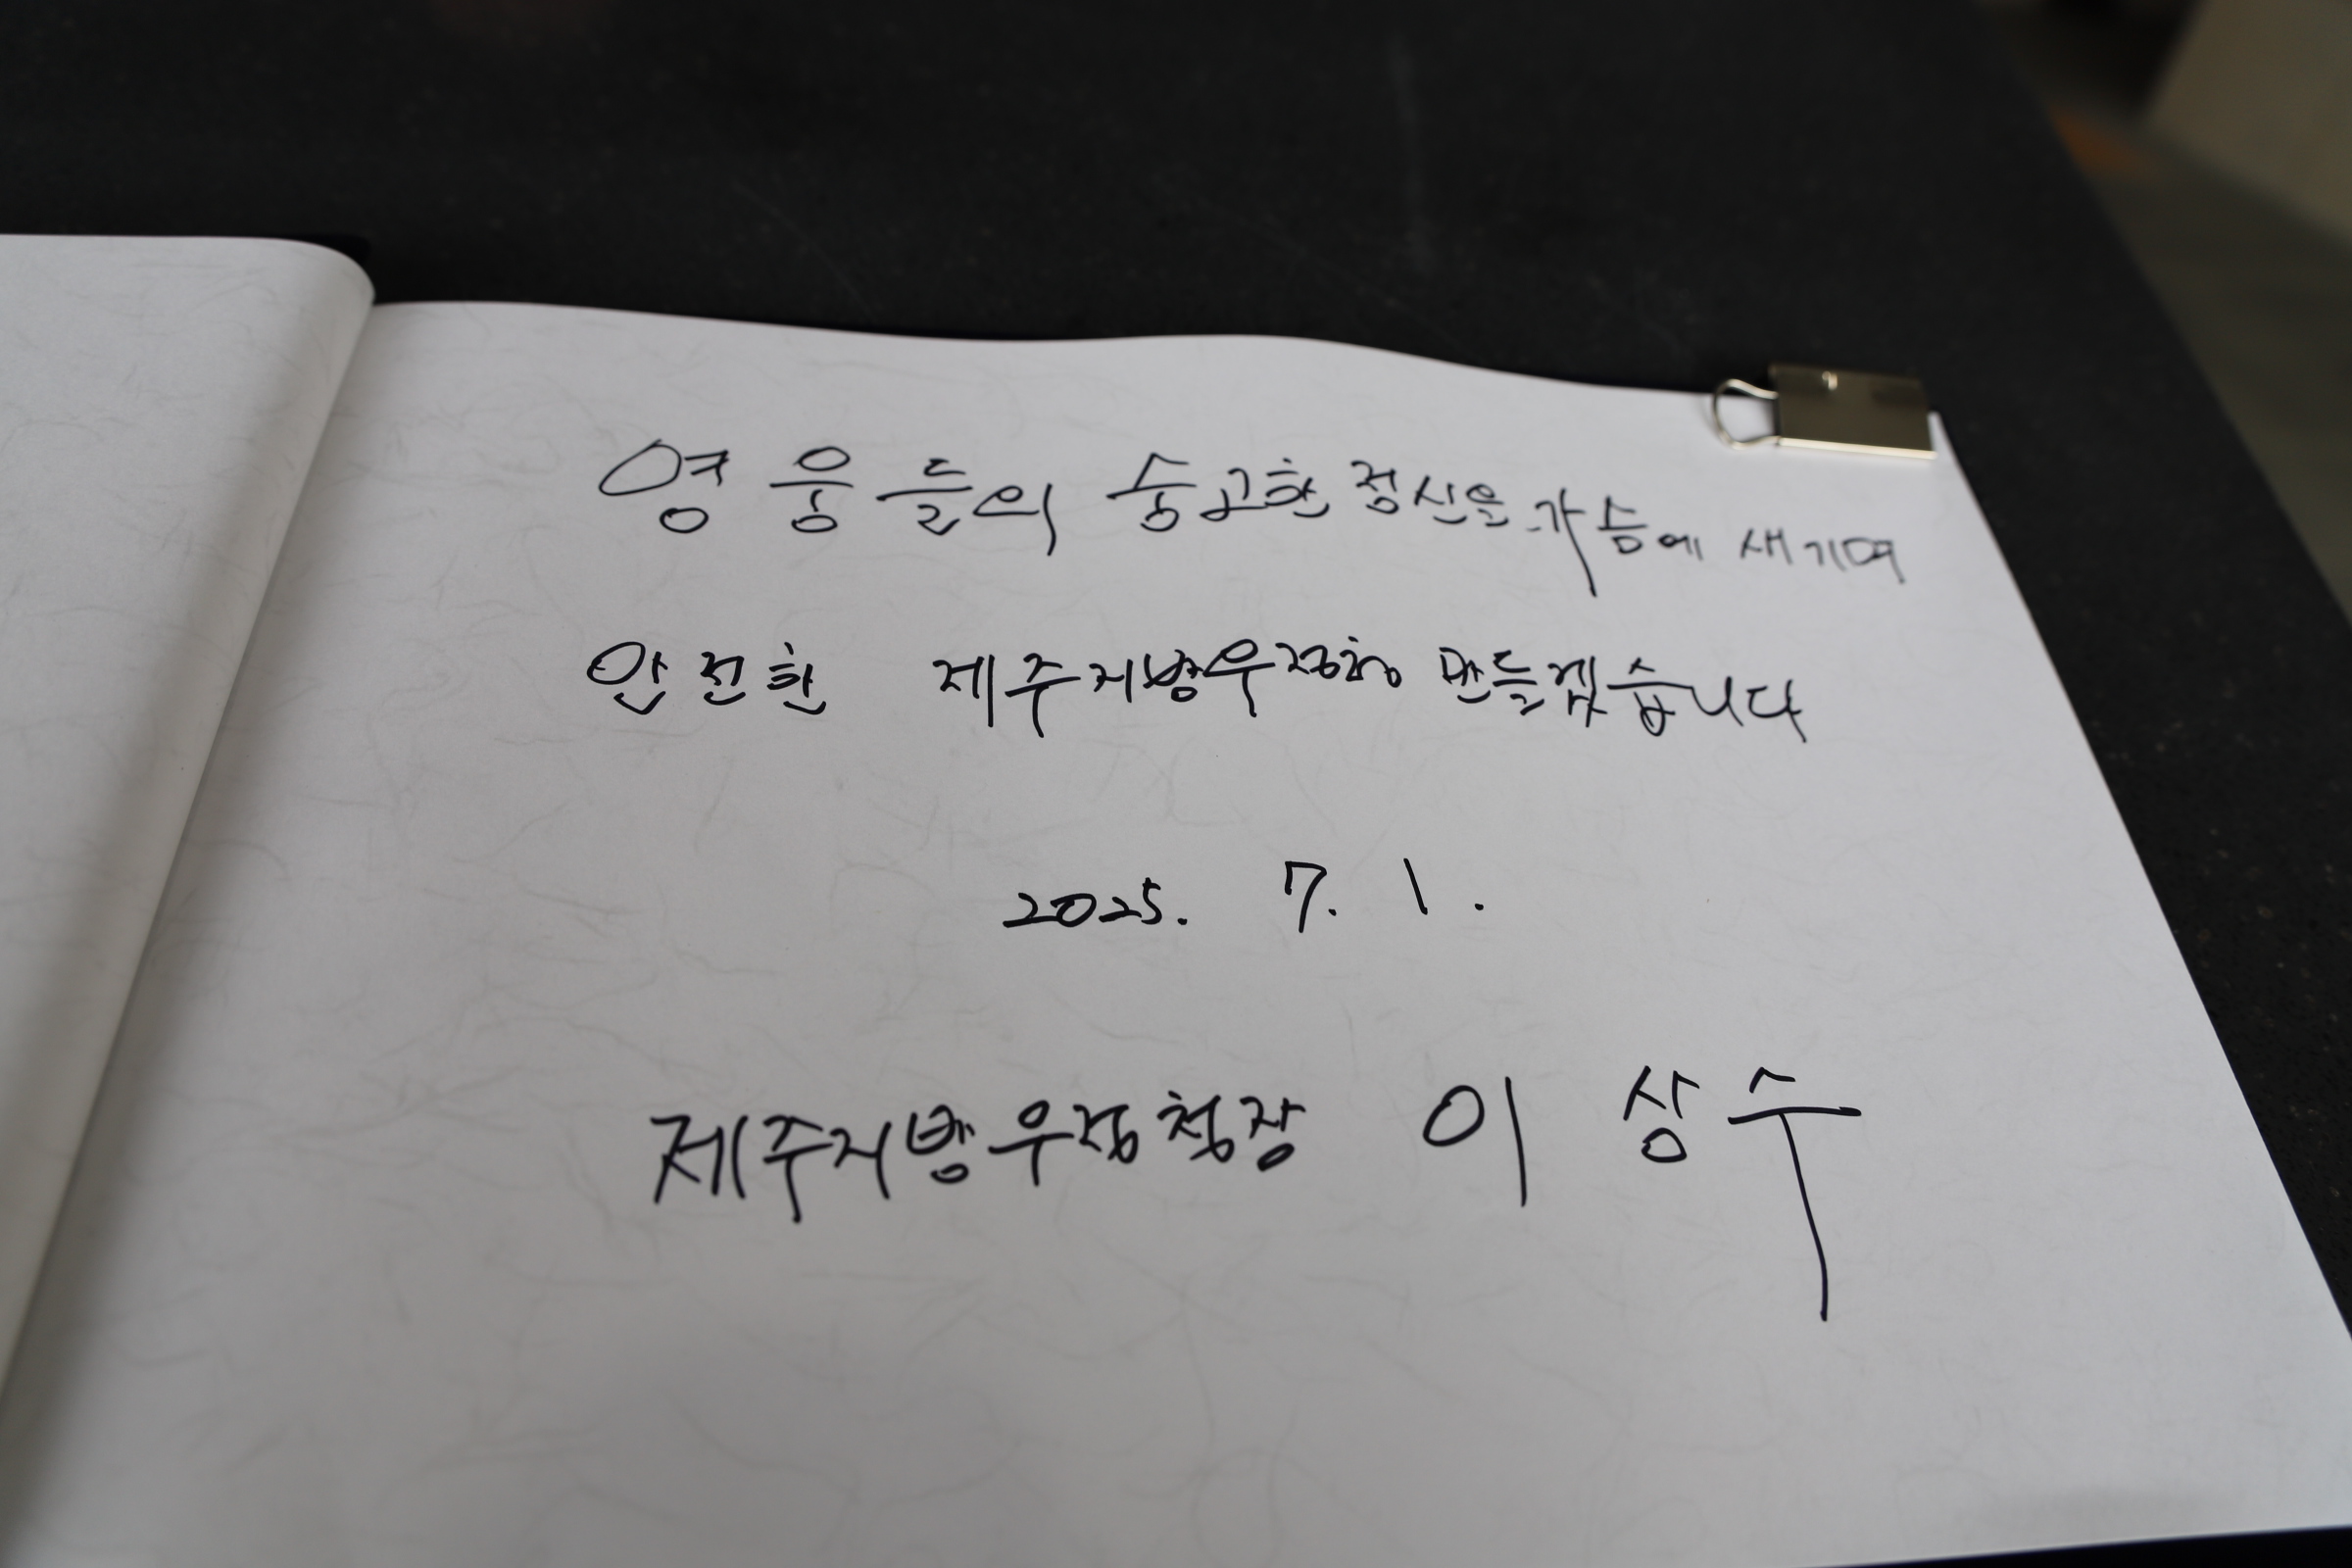 영웅들의 숭고한 정신을 가슴에 새기며
안전한 제주지방우정청 만들겠습니다
2025. 7. 1.
제주지방우정청장 이 상 수